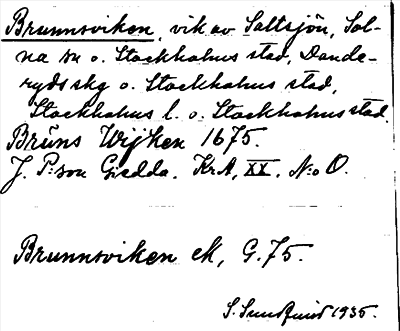 Brunnsviken, vik av Saltsjön, Sol-
na sn o. Stockholms stad, Dande-
ryds skg o. Stockholms stad,
Stockholms l. o. Stockholms stad.
Brūns Wijken 1675.
J. P:son Gedda. KrA, XX. N:o O.
Brunnsviken ek, G. 75.
S. Sundquist 1935.